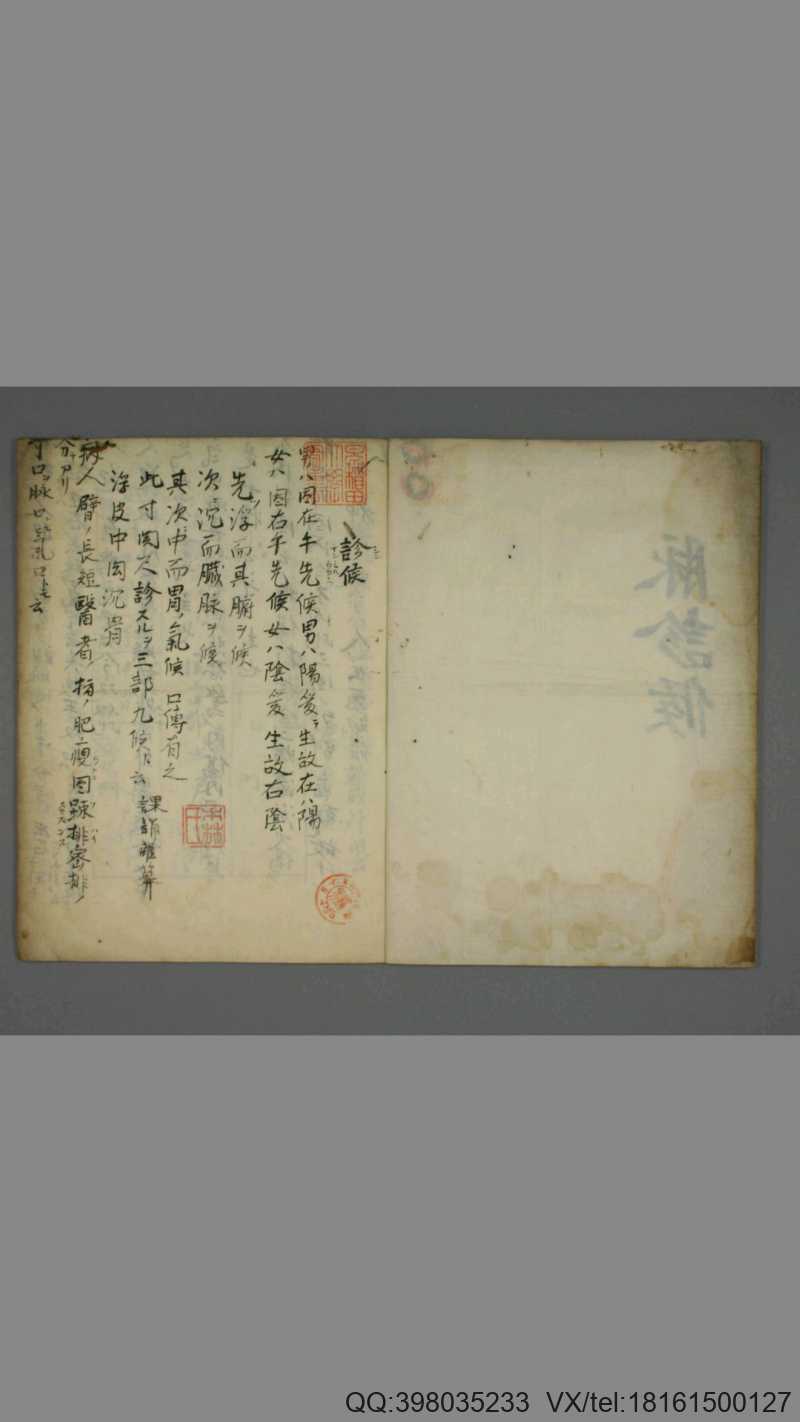 脉診候
診候
男ハ因在手先候男ハ陽ヲ生故在陽
女ハ因右手先候女ハ陰生故右陰
先浮而其腑ヲ候
次沉而臓脉ヲ候
其次中而胃ノ氣候口傳有之
此寸関尺診スルヲ三部九候ト云
浮皮中肉沉骨
病人臂ノ長短醫者ノ指ノ肥瘦因踈排密排ノ
分アリ
寸口脉口氣口トモ云
QQ:398035233 VX/tel:18161500127